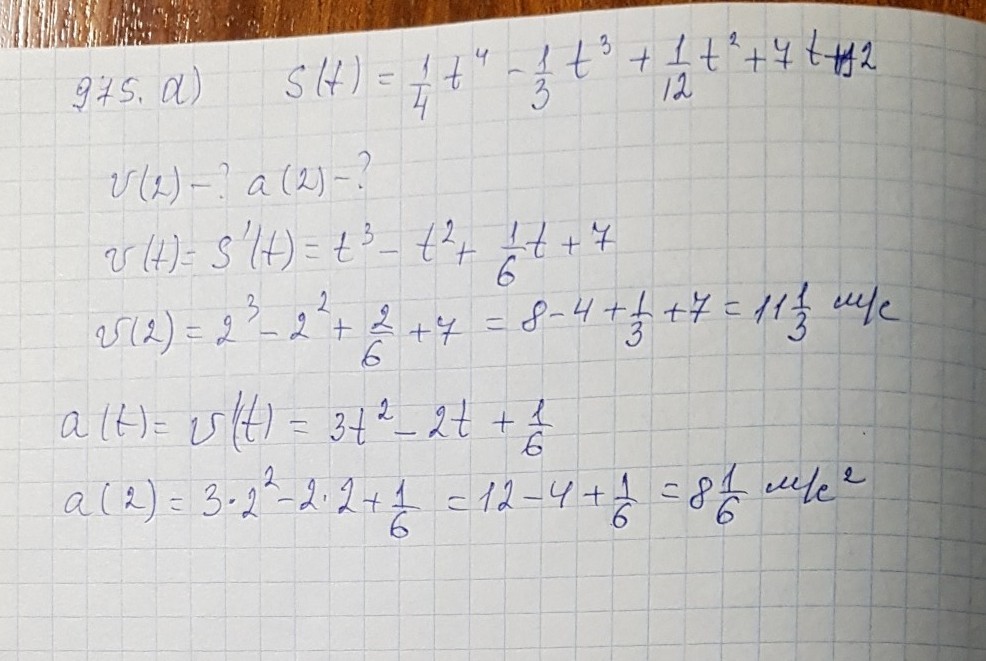 975. а) S(t) = 1/4 t⁴ - 1/3 t³ + 1/12 t² + 7t 2
v(2) - ? a(2) - ?
v(t) = S'(t) = t³ - t² + 1/6 t + 7
v(2) = 2³ - 2² + 2/6 + 7 = 8 - 4 + 1/3 + 7 = 11 1/3 м/с
a(t) = v'(t) = 3t² - 2t + 1/6
a(2) = 3·2² - 2·2 + 1/6 = 12 - 4 + 1/6 = 8 1/6 м/с²